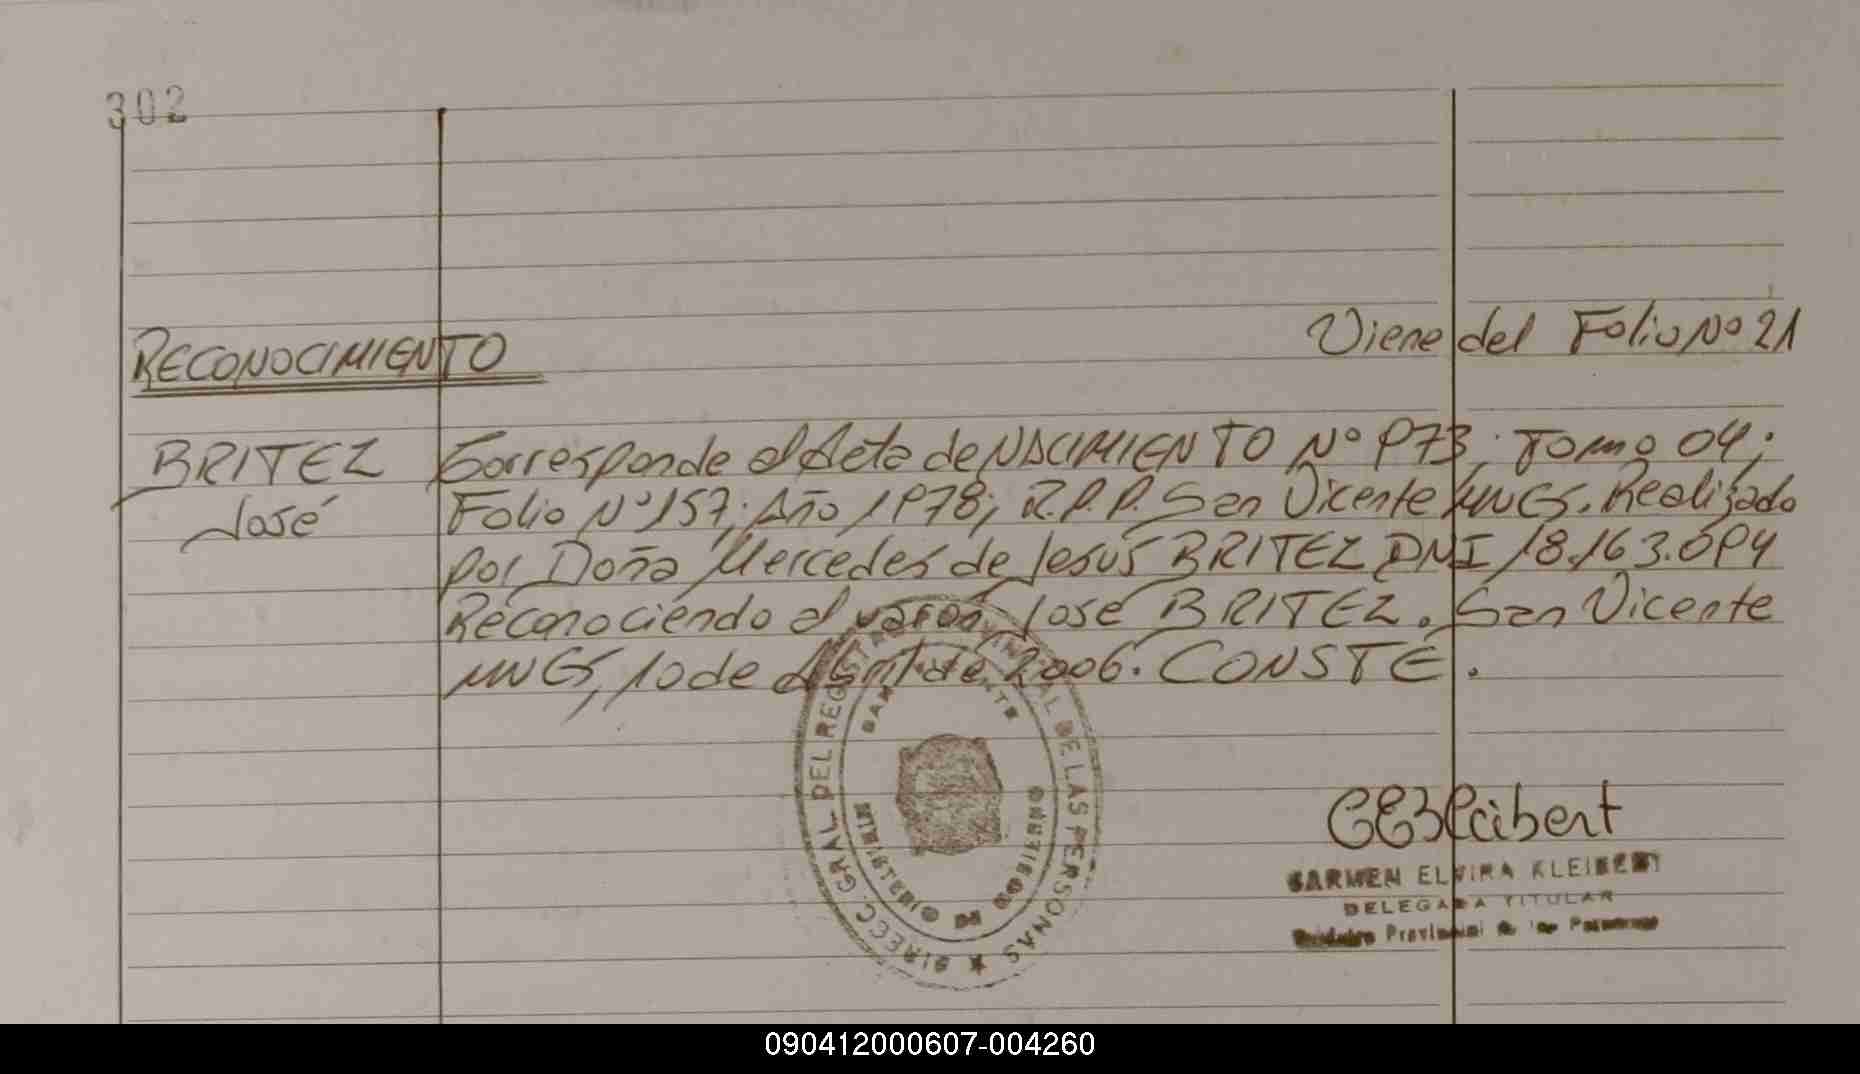 302
Viene del Folio Nº 21
RECONOCIMIENTO
BRITEZ
José
Corresponde al Acta de NACIMIENTO Nº 973; Tomo 04;
Folio Nº 157; Año 1978; R.P.P. San Vicente MNES. Realizado
por Doña Mercedes de Jesus BRITEZ DNI 18.163.094
Reconociendo al varon José BRITEZ. San Vicente
MNES, 10 de Abril de 2006. CONSTE.
DIRECC. GRAL DEL REG DE LAS PERSONAS
MINISTERIO DE GOBIERNO
CARMEN ELVIRA KLEIBERT
DELEGADA TITULAR
Provincial
090412000607-004260